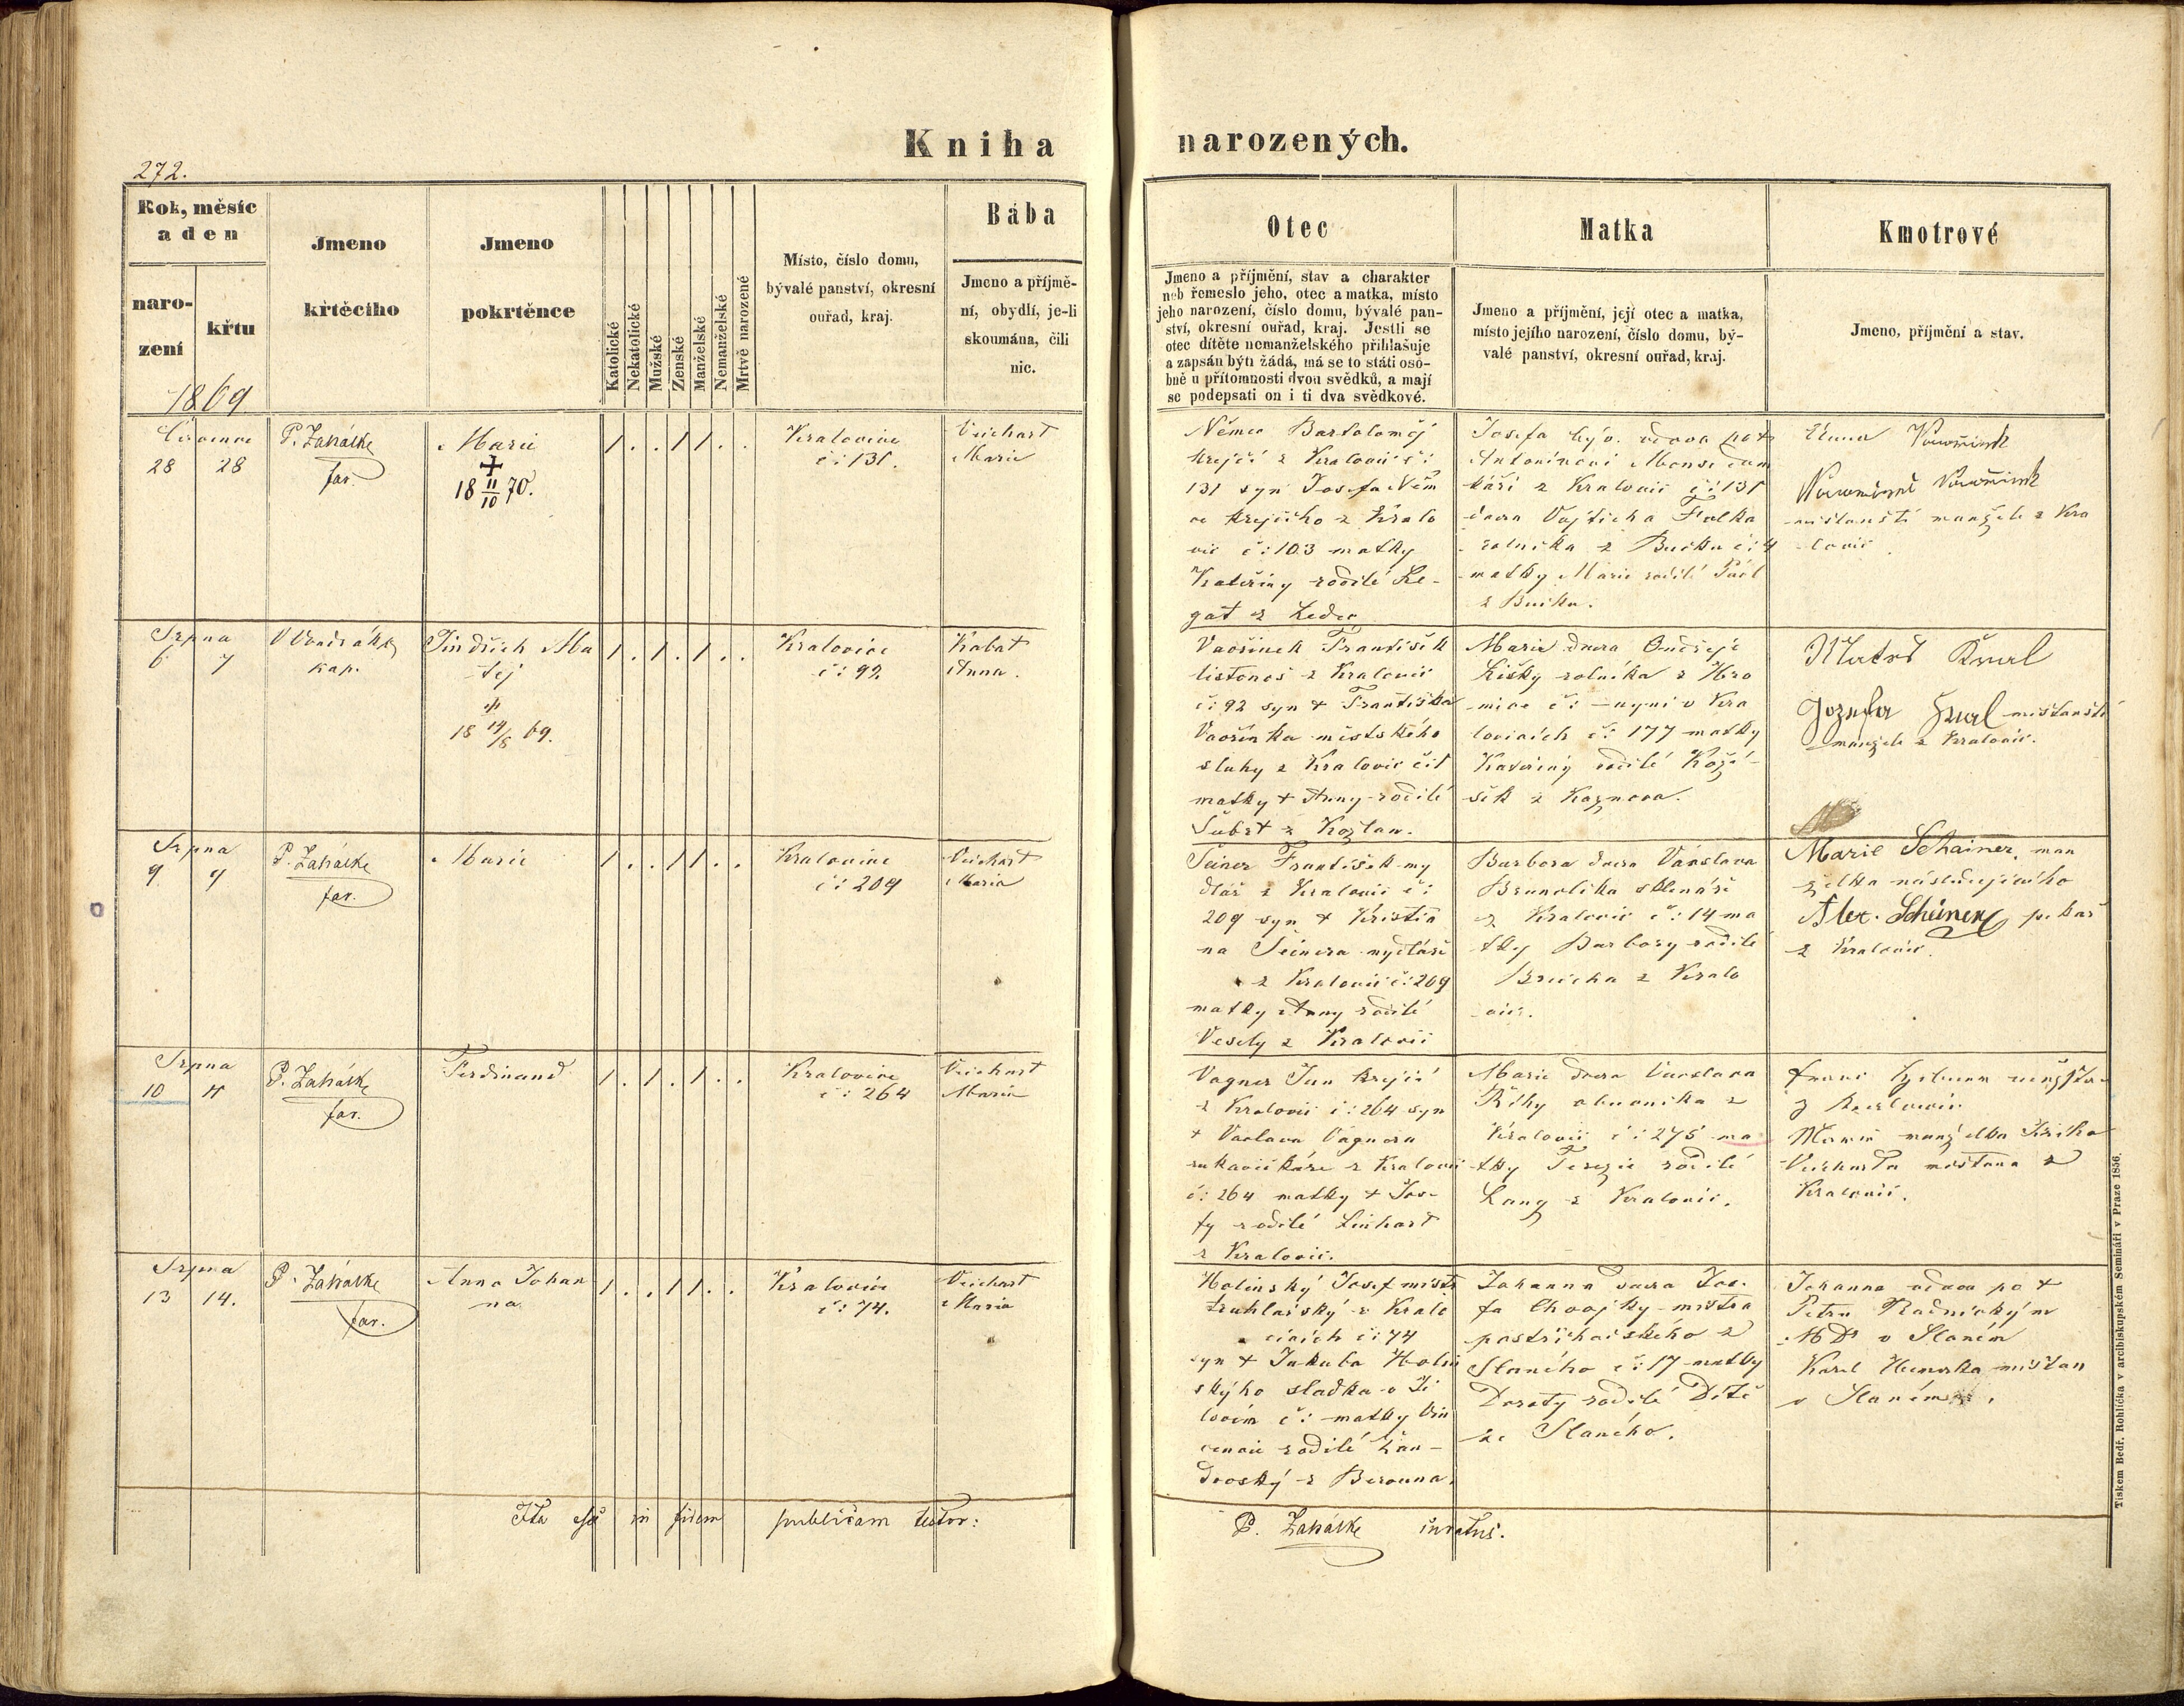 Kniha
narozených.
272.
Rok, měsíc
a den
naro-
zení
křtu
1869
Jmeno
křtěcího
Jmeno
pokrtěnce
Katolické
Nekatolické
Mužské
Zenské
Manželské
Nemanželské
Mrtvě narozené
Místo, číslo domu,
bývalé panství, okresní
ouřad, kraj.
Bába
Jmeno a příjmě-
ní, obydlí, je-li
skoumána, čili
nic.
Otec
Jmeno a příjmění, stav a charakter
neb řemeslo jeho, otec a matka, místo
jeho narození, číslo domu, bývalé pan-
ství, okresní ouřad, kraj. Jestli se
otec dítěte nemanželského přihlašuje
a zapsán býti žádá, má se to státi oso-
bně u přítomnosti dvou svědků, a mají
se podepsati on i ti dva svědkové.
Matka
Jmeno a příjmění, její otec a matka,
místo jejího narození, číslo domu, bý-
valé panství, okresní ouřad, kraj.
Kmotrové
Jmeno, příjmění a stav.
28 28
P. Zahálke
far.
Marie
+
18 11/10 70.
1 . . 1 1 . .
Kralovice
č: 131.
Veichart
Marie
Němec Bartoloměj
krejčí z Kralovic č:
131 syn Josefa Něm
ce krejčího z Kralo
vic č: 103 matky
Kateřiny rozilé Le-
gát z Ledec
Josefa býv. vdova po +
Antonínovi
z Kralovic č: 131
dcera Vojtěcha
rolníka z Bučku č: 4
matky Marie rodilé
z Bučku.
manželé z Kra
lovic.
Srpna
6 7
kap.
Jindřich Ma
těj
+
18 14/8 69.
1 . 1 . 1 . .
Kralovice
č: 92
Kabat
Anna.
Vaořinek František
listonoš z Kralovic
č: 92 syn + Františka
Vaořinka městského
sluhy z Kralovic č: 1
matky + Anny rodilé
Šubrt z Kozlan.
Marie dcera Ondřeje
Lišky rolníka z Hro
mice č: – nyní v Kra
lovicích č: 177 matky
Kateřiny rodilé Koží-
šek z Kaznova.
Matěj Král
Jozefa Král měšťanští
manželé z Kralovic.
Srpna
9 9
P. Zahálke
far.
Marie
1 . . 1 1 . .
Kralovice
č: 209
Veichart
Marie
Šeiner František my
dlář z Kralovic č:
209 syn + Kristiá
na Šeinera mydláře
z Kralovic č: 209
matky Anny rodilé
Vesely z Kralovic
Barbora dcera Václava
Brunclíka sklenáře
z Kralovic č: 14 ma
tky Barbory rodilé
Březcha z Kralo
vic.
Marie Schainer, man
želka následujícího
Alex. Scheiner pekař
z Kralovic.
Srpna
10 11
P. Zahálke
far.
Ferdinand
1 . 1 . 1 . .
Kralovice
č: 264
Veichart
Marie
Vagner Jan krejčí
z Kralovic č: 264 syn
+ Vaclava Vagnera
rukavičkáře z Kralovic
č: 264 matky + Jose-
fy rodilé Linhart
z Kralovic.
Marie dcera Vaclava
Říhy obuvníka z
Kralovic č: 275 ma
tky Terezie rodilé
Lang z Kralovic.
Marie manželka
Veicharta měšťana z
Kralovic.
Srpna
13 14.
P. Zahálke
far.
Anna Johan
na
1 . . 1 1 . .
Kralovice
č: 74.
Veichart
Marie
Holinský Josef mistr
truhlařský v Kralo
vicích č: 74
syn + Jakuba Holin
ského sladka v Ji
lovém č: matky Vin
cencie rodilé Žan-
dovský z Berouna.
Johanna dcera Jos.
fa Chvojky mistra
postřihačského z
Slaného č: 17 matky
Doroty rodilé Dítě
ze Slaného.
Johanna vdova po +
Petru Radnickým
MDr v Slaném
Karel měšťan
v Slaném.
Ita esse in fidem publicam testor:
P. Zahálke
Tiskem Bedř. Rohlíčka v arcibiskupském Semináři v Praze 1856.